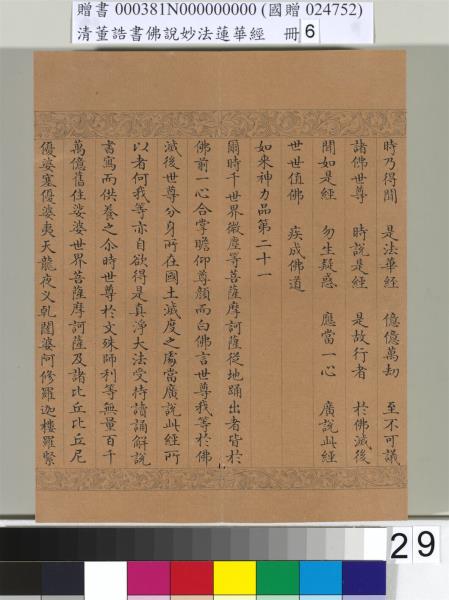 贈書 000381N000000000 (國贈 024752)
清董誥書佛說妙法蓮華經 冊 6
時乃得聞 是法華經 億億萬劫 至不可議
諸佛世尊 時說是經 是故行者 於佛滅後
聞如是經 勿生疑惑 應當一心 廣說此經
世世值佛 疾成佛道
如來神力品第二十一
爾時千世界微塵等菩薩摩訶薩從地踊出者皆於
佛前一心合掌瞻仰尊顏而白佛言世尊我等於佛
滅後世尊分身所在國土滅度之處當廣說此經所
以者何我等亦自欲得是真淨大法受持讀誦解說
書寫而供養之尒時世尊於文殊師利等無量百千
萬億舊住娑婆世界菩薩摩訶薩及諸比丘比丘尼
優婆塞優婆夷天龍夜叉乾闥婆阿修羅迦樓羅緊
29